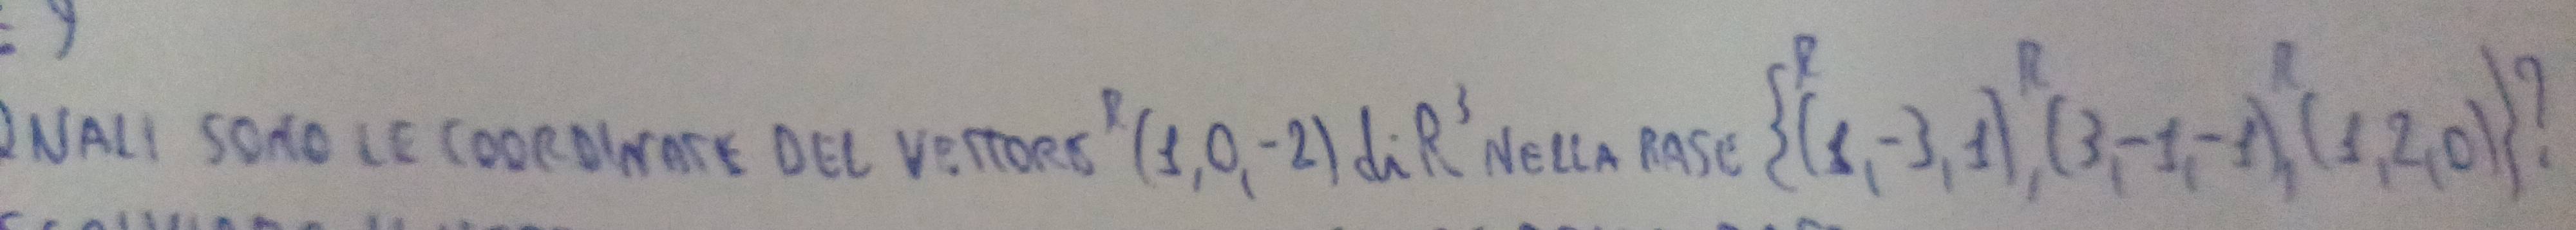 QUALI SONO LE COORDINATE DEL VETTORE ᴿ(1,0,-2) di R³ NELLA BASE {ᴿ(1,-3,1), ᴿ(3,-1,-1), ᴿ(1,2,0)}?